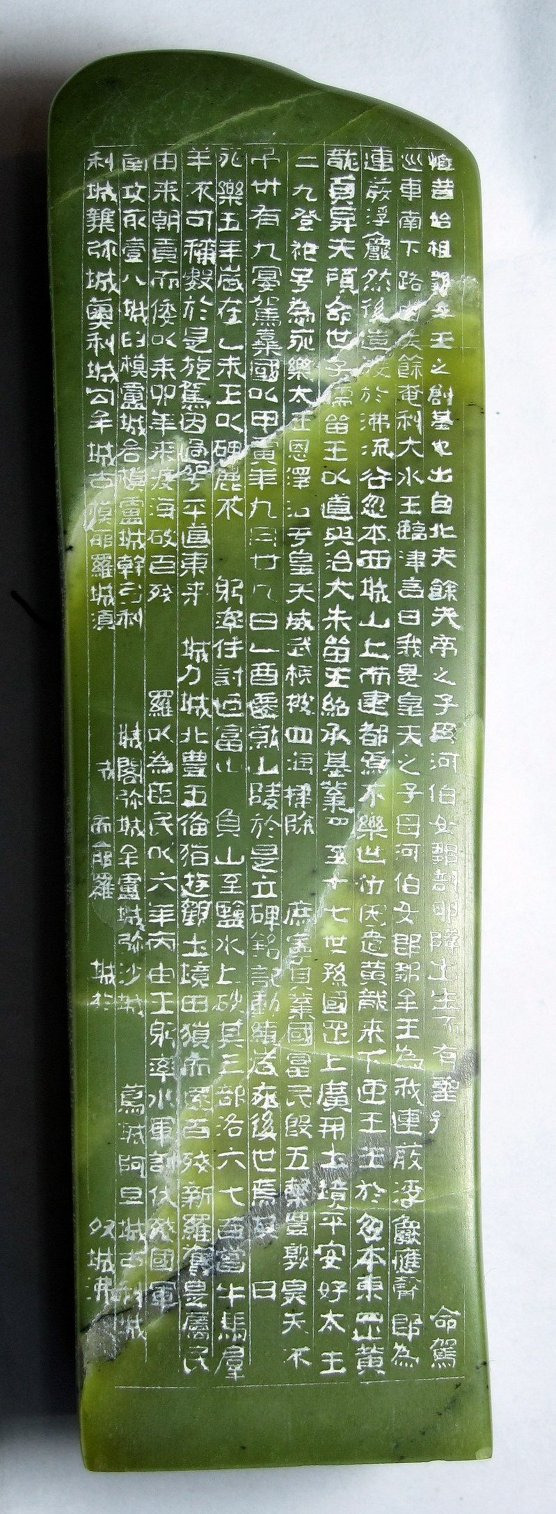 惟昔始祖鄒牟王之創基也出自北夫餘天帝之子母河伯女郎剖卵降 生 有聖 命駕
巡車南下路由夫餘奄利大水王臨津言曰我是皇天之子母河伯女郎鄒牟王為我連葭浮龜應聲即為
連葭浮龜然後造渡於沸流谷忽本西城山上而建都焉不樂世位因遣黃龍來下迎王王於忽本東罡黃
龍負昇天顧命世子儒留王以道興治大朱留王紹承基業 至十七世孫國罡上廣開土境平安好太王
二九登祚号為永樂太王恩澤洽于皇天威武振被四海掃除 庶寧其業國富民殷五穀豐熟昊天不
弔卅有九宴駕棄國以甲寅年九月廿九日乙酉遷就山陵於是立碑銘記勳績 永後世焉 曰
永樂五年歲在乙未王以碑麗不 躬率住討過富山 負山至鹽水上破其三部洛六七百營牛馬群
羊不可稱數於是旋駕因過 平道東來 城力城北豐五備猶遊觀土境田獵而還百殘新羅舊是屬民
由來朝貢而倭以耒卯年來渡海破百殘 羅以為臣民以六年丙申王躬率水軍討伐殘國軍
南攻取壹八城臼模盧城各模盧城幹弓利 城閣弥城牟盧城弥沙城 蔦城阿旦城古利城
利城雜弥城奧利城勾牟城古模耶羅城須 城 而耶羅 城於 奴城沸